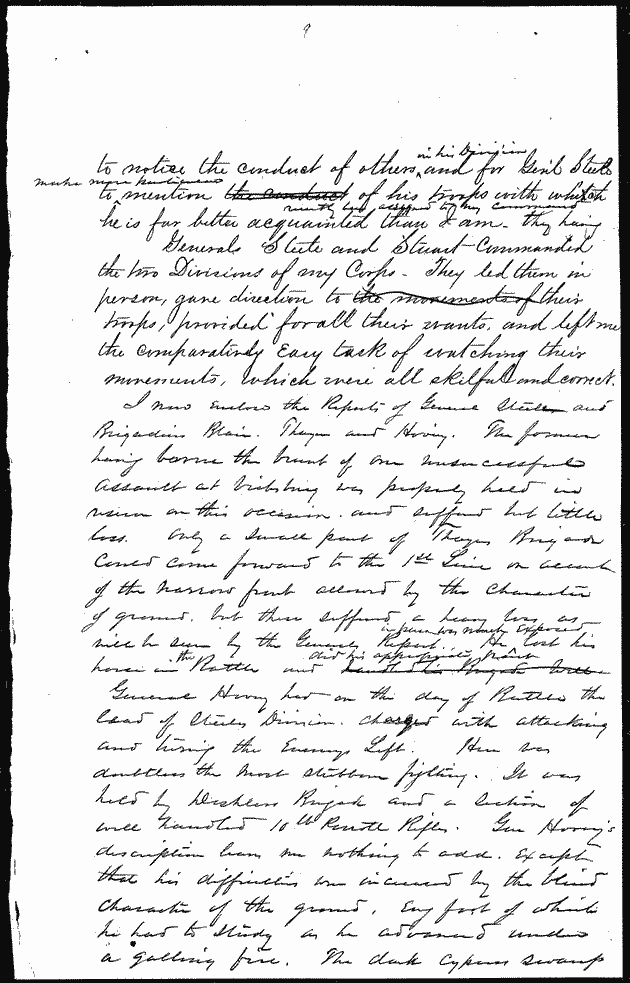 9
in his Division
to notice the conduct of others, and for Gen'l Steele
make more particular
to mention the conduct of his troops with which
recently been assigned to my command
he is far better acquainted than I am - they having
Generals Steele and Stuart Commanded
the two Divisions of my Corps - They led them in
person, gave direction to the movements of their
troops, provided for all their wants, and left me
the comparatively Easy task of watching their
movements, which were all skilful and correct.
I now enclose the Reports of General Steele and
Brigadiers Blair, Thayer and Hovey. The former
having borne the brunt of our unsuccessful
assault at Vicksburg was properly held in
reserve on this occasion, and suffered but little
loss. Only a small part of Thayers Brigade
Could come forward to the 1st Line on account
of the narrow front allowed by the character
of ground, but these suffered a heavy loss as
in person was severely Exposed
will be seen by the Generals Report. He lost his
did his appropriate part
horse in the Battle and handled his Brigade well
General Hovey had on the day of Battle the
lead of Steeles Division, charged with attacking
and turning the Enemys Left. Here was
doubtless the most stubborn fighting. It was
held by Deshlers Brigade and a section of
well handled 10 lb Parrott Rifles. Gen Hovey's
description leaves me nothing to add. Except
that his difficulties were increased by the blind
character of the ground, Evy foot of which
he had to study as he advanced under
a galling fire. The dark cypress swamp